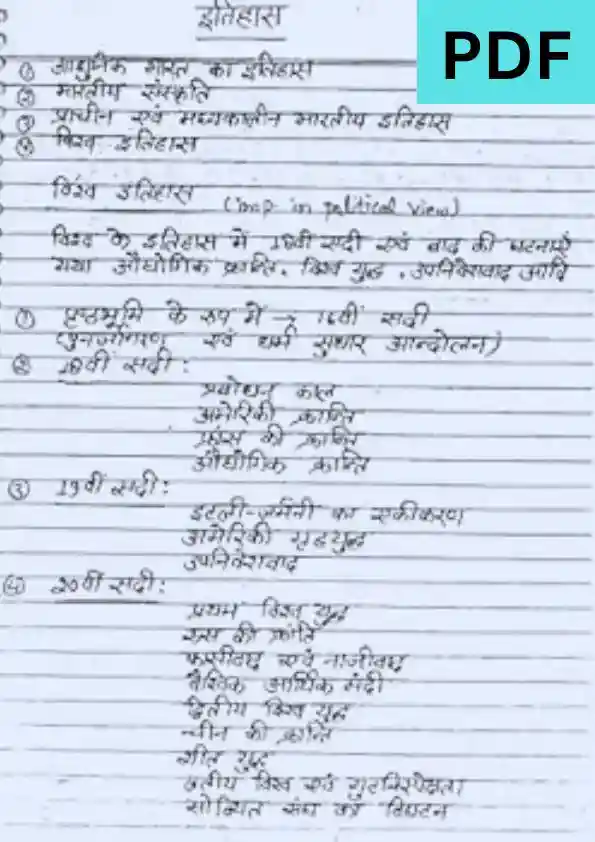 इतिहास
PDF
① आधुनिक भारत का इतिहास
② भारतीय संस्कृति
③ प्राचीन एवं मध्यकालीन भारतीय इतिहास
④ विश्व इतिहास
विश्व इतिहास (map in political view)
विश्व के इतिहास में 18वीं सदी एवं बाद की घटनाएँ
यथा औद्योगिक क्रान्ति, विश्व युद्ध, उपनिवेशवाद
① पृष्ठभूमि के रूप में → 16वीं सदी
(पुनर्जागरण एवं धर्म सुधार आन्दोलन)
② 18वीं सदी:
प्रबोधन काल
अमेरिकी क्रान्ति
फ्रांस की क्रान्ति
औद्योगिक क्रान्ति
③ 19वीं सदी:
इटली-जर्मनी का एकीकरण
अमेरिकी गृहयुद्ध
उपनिवेशवाद
④ 20वीं सदी:
प्रथम विश्व युद्ध
रूस की क्रांति
फासीवाद एवं नाजीवाद
वैश्विक आर्थिक मंदी
द्वितीय विश्व युद्ध
चीन की क्रान्ति
शीत युद्ध
तृतीय विश्व एवं गुटनिरपेक्षता
सोवियत संघ का विघटन